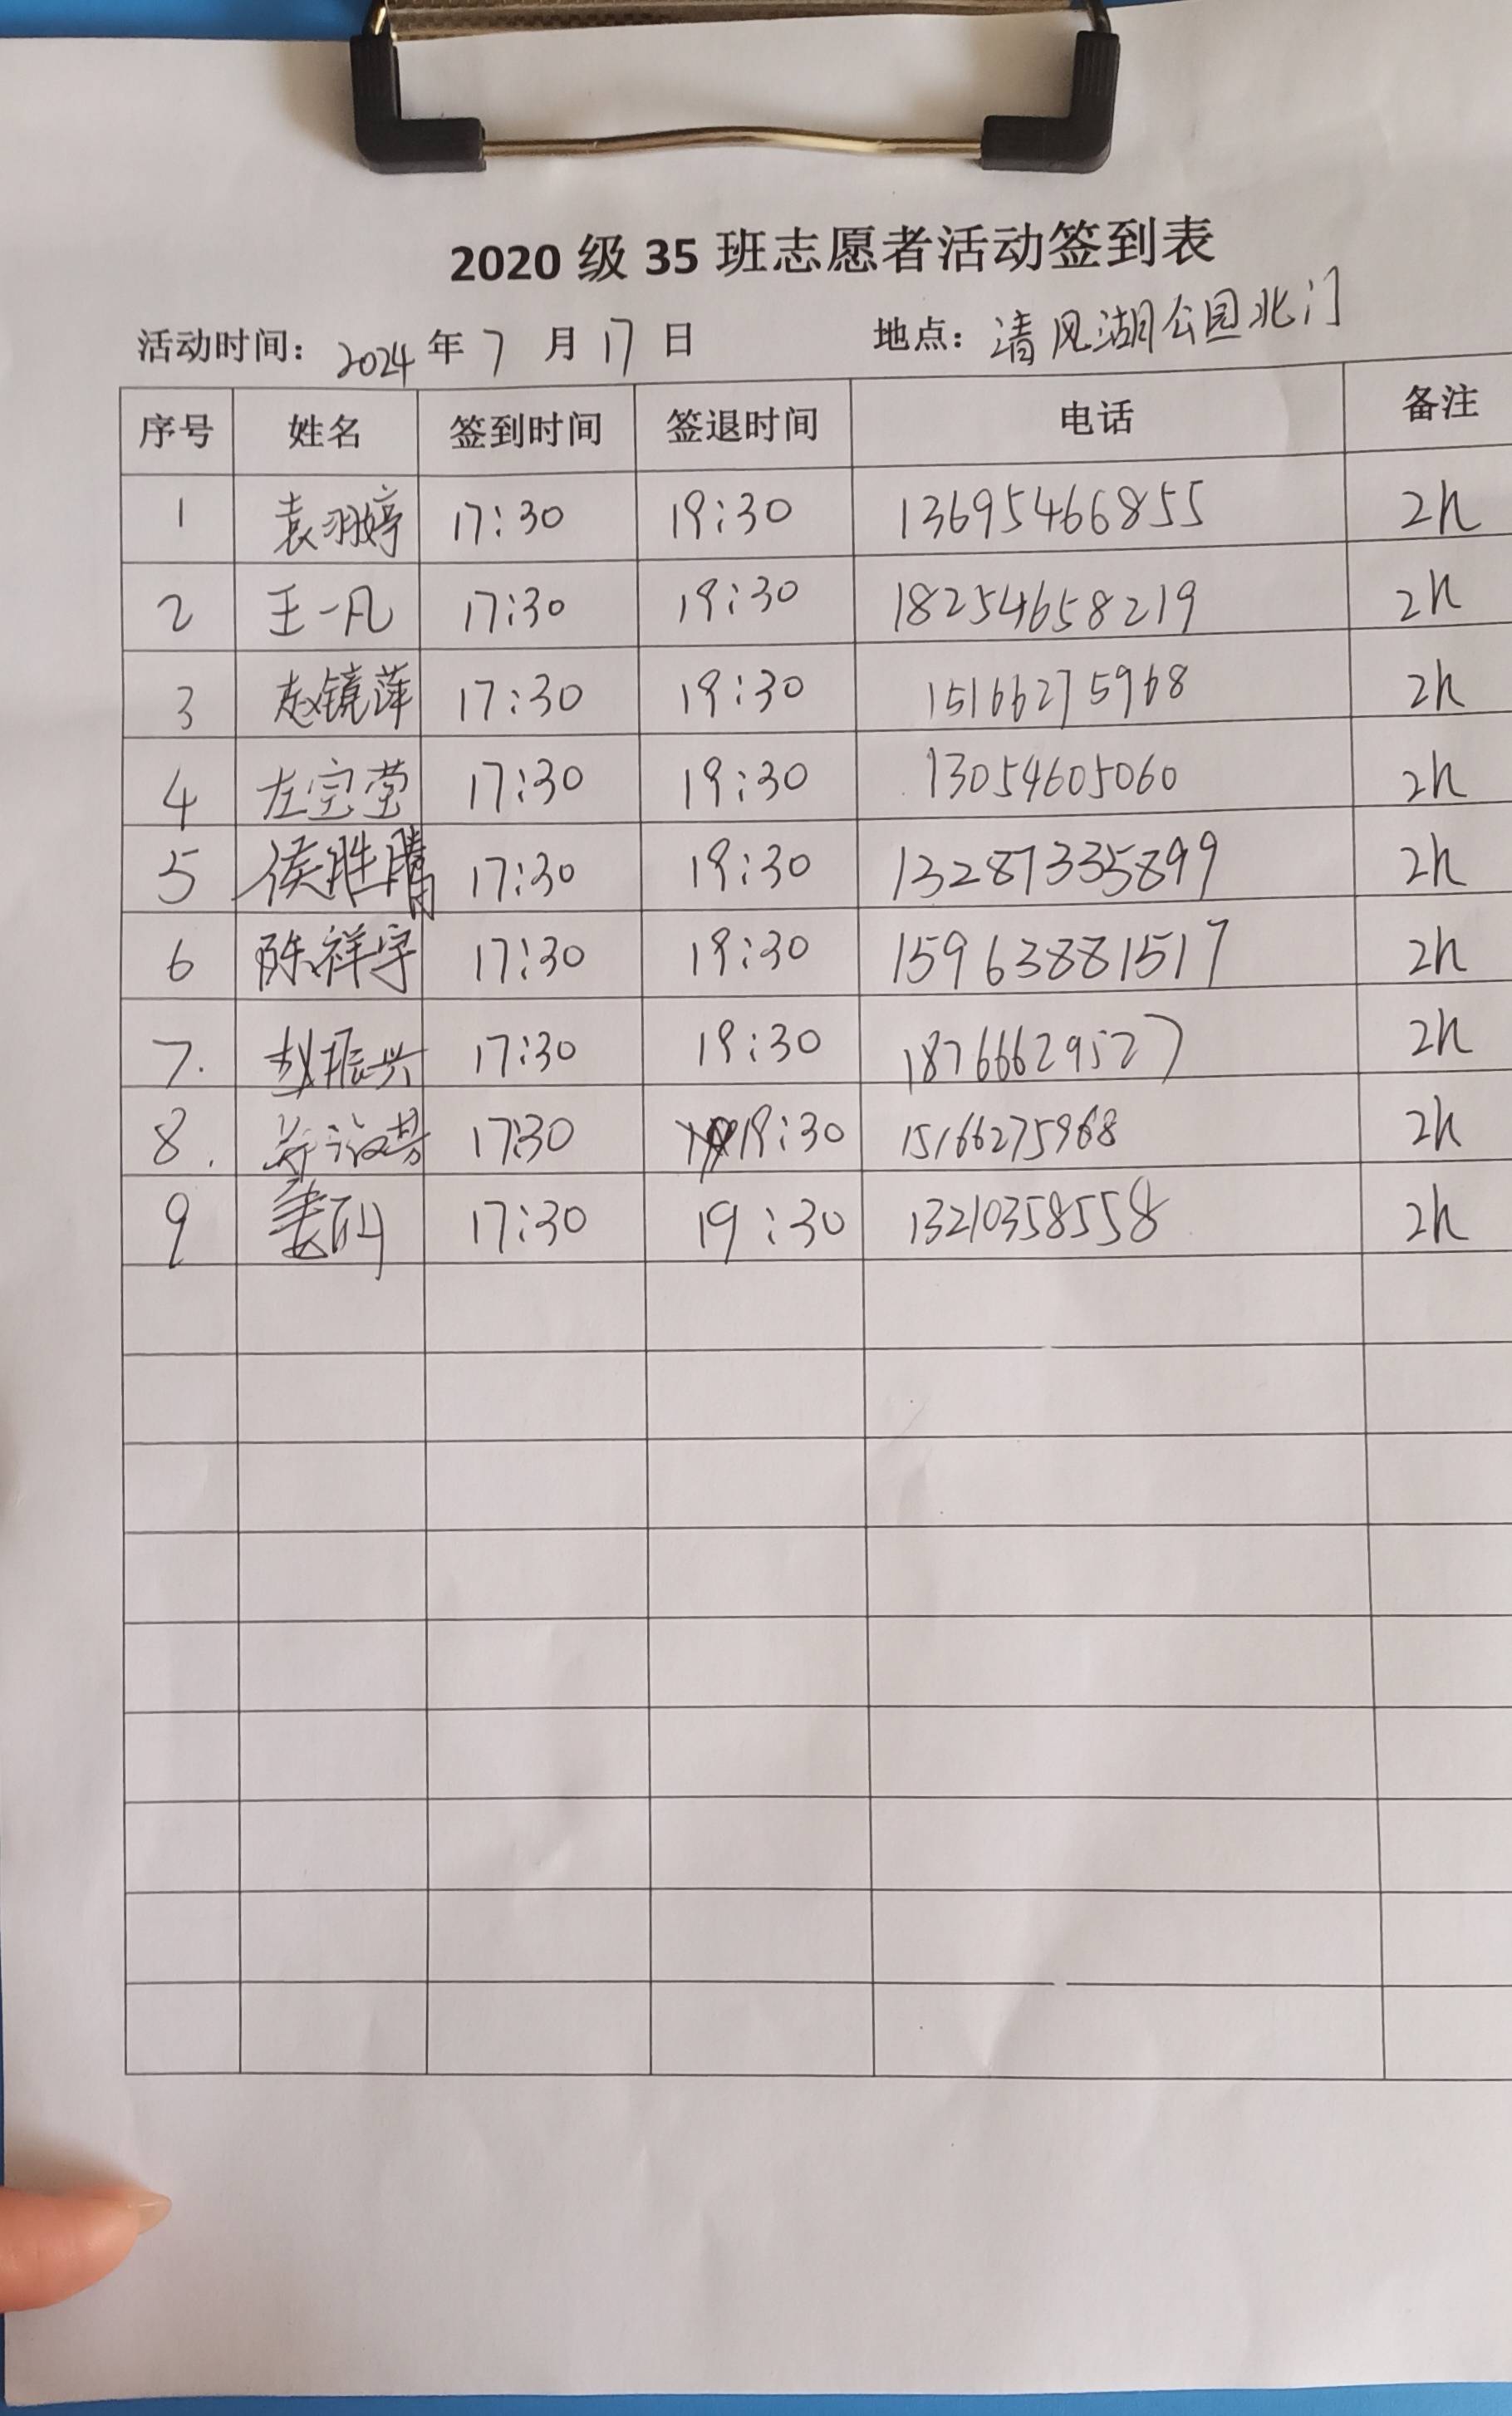 2020 级 35 班志愿者活动签到表
活动时间： 2024 年 7 月 17 日 地点： 清风湖公园北门
序号 姓名 签到时间 签退时间 电话 备注
1 袁羽婷 17:30 19:30 13695466855 2h
2 王一凡 17:30 19:30 18254658219 2h
3 赵镜萍 17:30 19:30 15166275968 2h
4 左宝莹 17:30 19:30 13054605060 2h
5 侯胜腾 17:30 19:30 13287335899 2h
6 陈祥宇 17:30 19:30 15963881517 2h
7. 赵振兴 17:30 19:30 18766629527 2h
8. 17:30 19:30 15166275968 2h
9 17:30 19:30 13210358558 2h